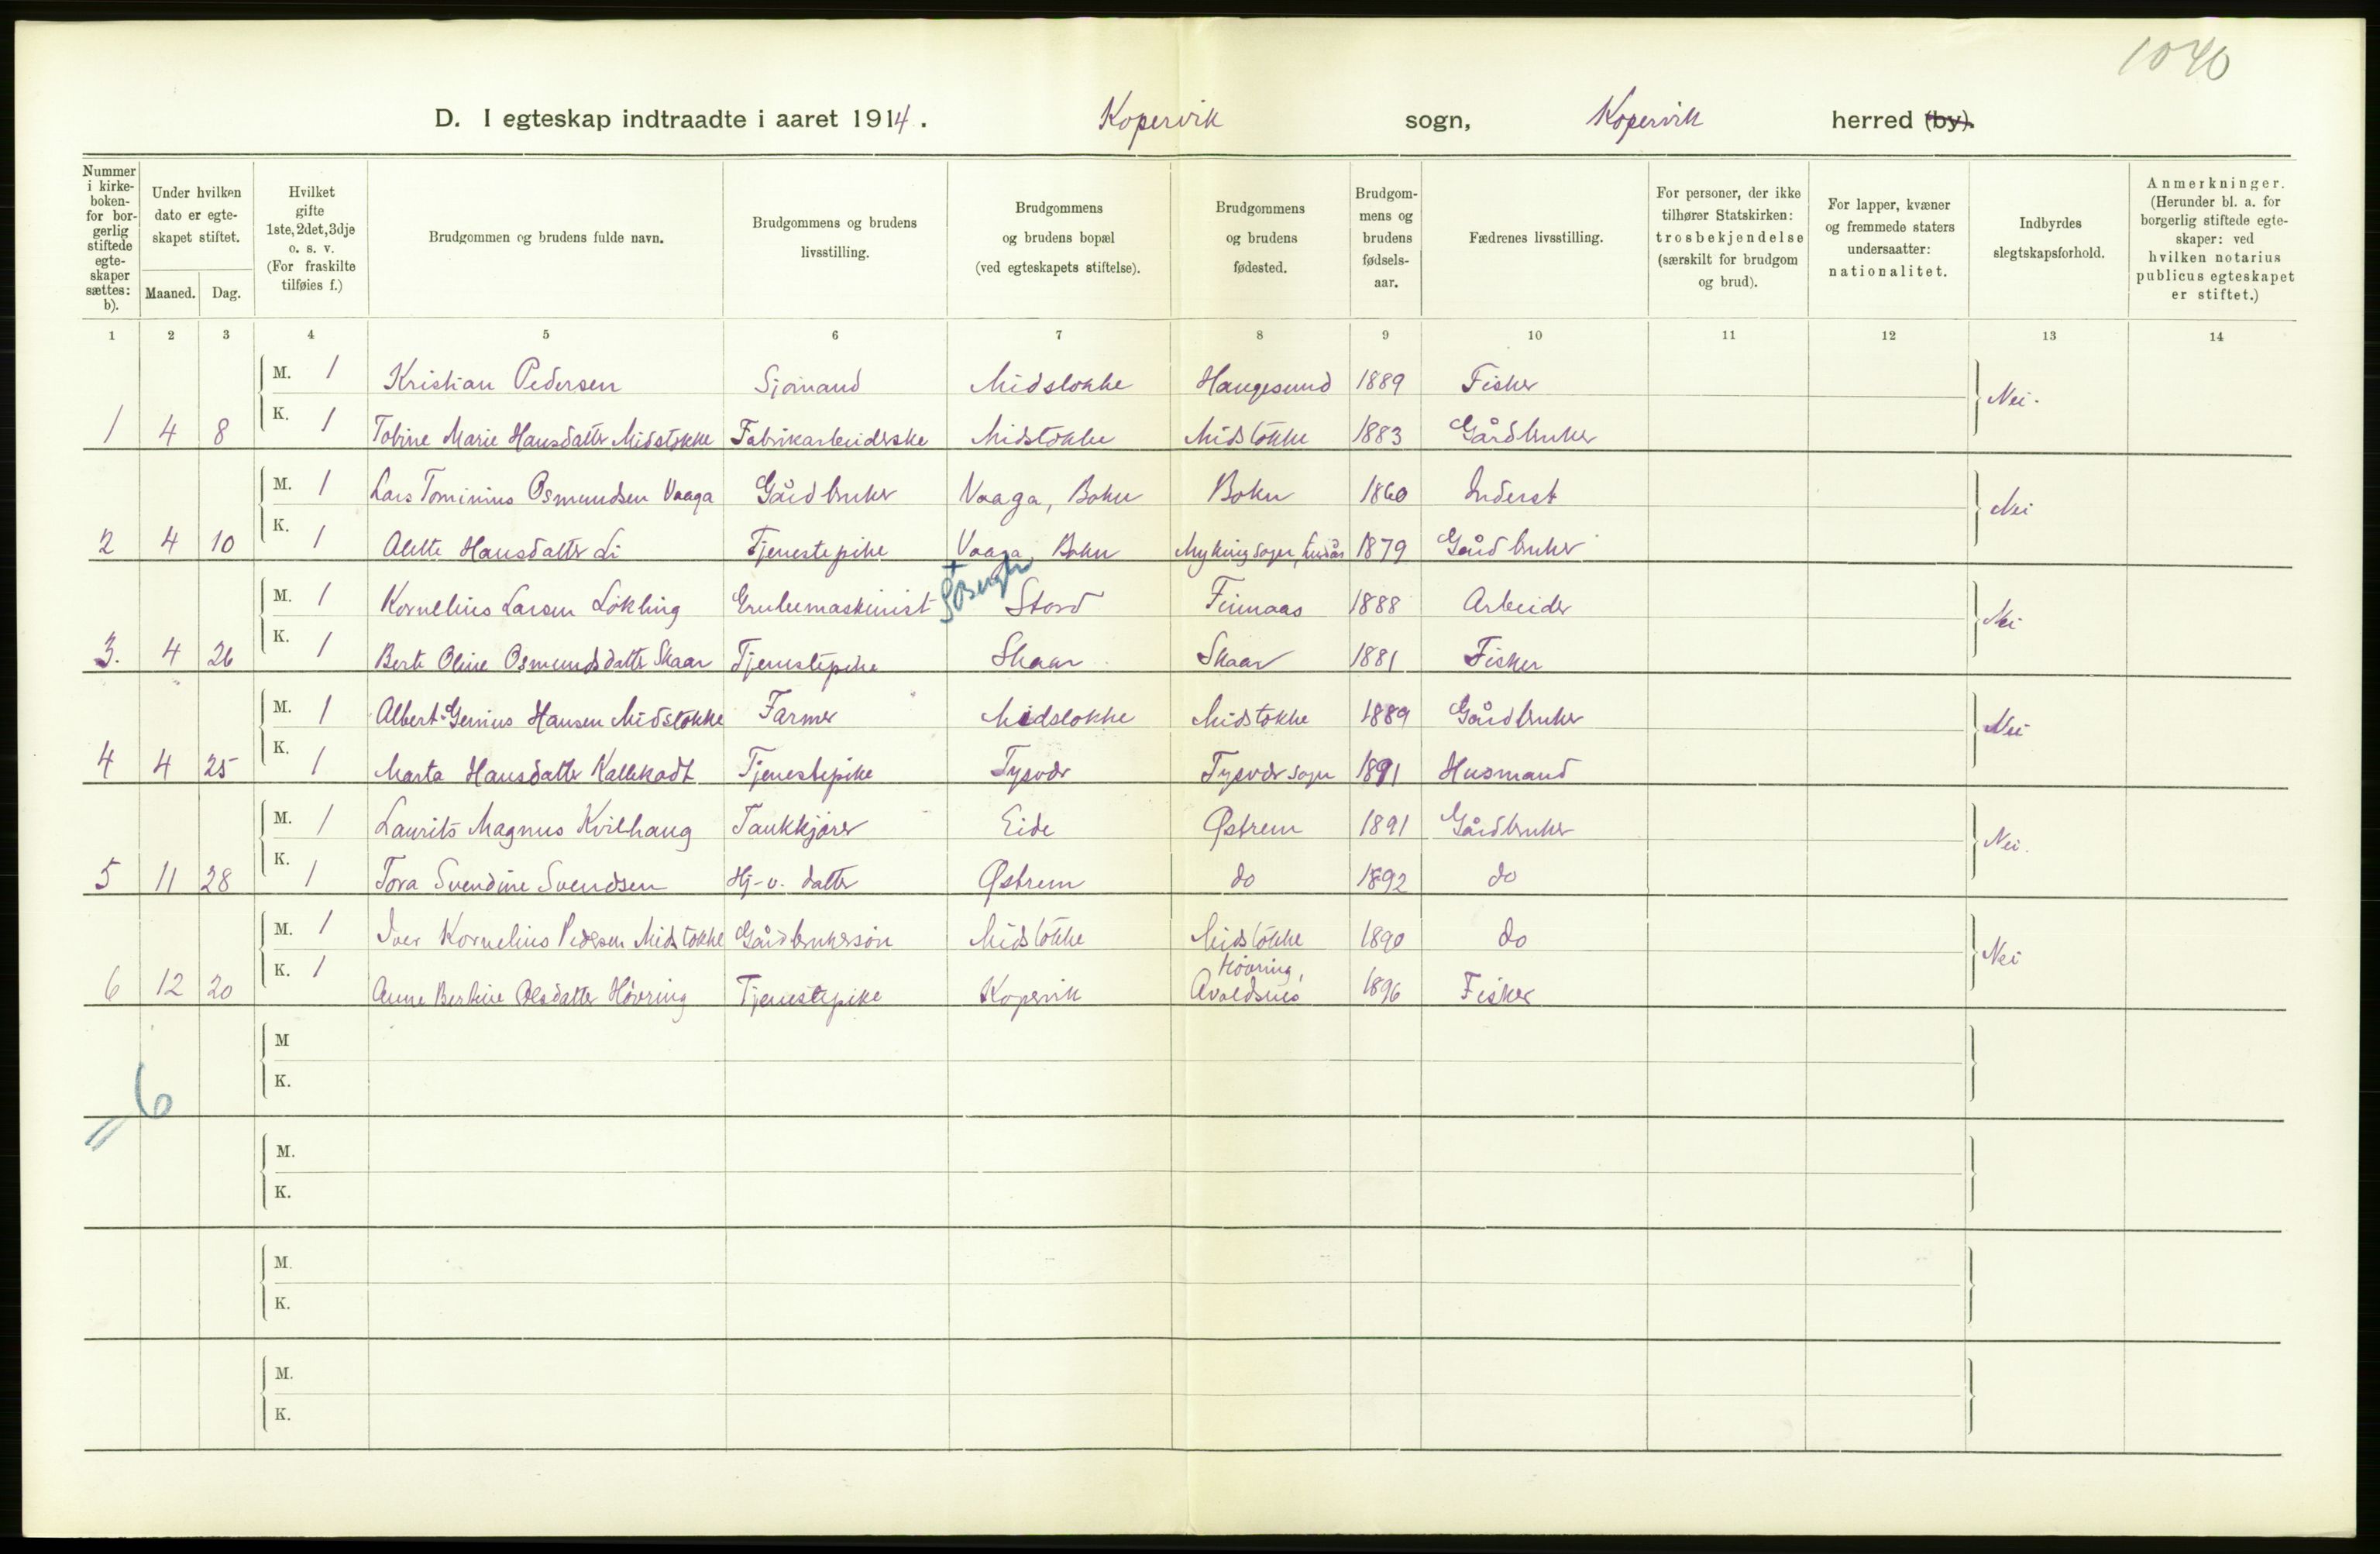 1040
D. I egteskap indtraadte i aaret 1914. Kopervik sogn, Kopervik herred (by).
Nummer i kirke-boken- for bor-gerlig stiftede egte-skaper sættes: b).
Under hvilken dato er egte-skapet stiftet.
Maaned. Dag.
Hvilket gifte 1ste, 2det, 3dje o. s. v. (For fraskilte tilføies f.)
Brudgommen og brudens fulde navn.
Brudgommens og brudens livsstilling.
Brudgommens og brudens bopæl (ved egteskapets stiftelse).
Brudgommens og brudens fødested.
Brudgom-mens og brudens fødsels-aar.
Fædrenes livsstilling.
For personer, der ikke tilhører Statskirken: trosbekjendelse (særskilt for brudgom og brud).
For lapper, kvæner og fremmede staters undersaatter: nationalitet.
Indbyrdes slegtskapsforhold.
Anmerkninger. (Herunder bl. a. for borgerlig stiftede egte-skaper: ved hvilken notarius publicus egteskapet er stiftet.)
1 2 3 4 5 6 7 8 9 10 11 12 13 14
M. 1 Kristian Pedersen Sjømand Midstokke Haugesund 1889 Fisker Nei.
1 4 8 K. 1 Tobine Marie Hansdatter Midstokke Fabrikarbeiderske Midstokke Midstokke 1883 Gårdbruker
M. 1 Lars Tominius Osmundsen Vaaga Gårdbruker Vaaga, Bokn Bokn 1860 Inderst Nei
2 4 10 K. 1 Alette Hansdatter Li Tjenestepike Vaaga Bokn Myking sogn, Lindås 1879 Gårdbruker
M. 1 Kornelius Larsen Løkling Grubemaskinist Stord Finnaas 1888 Arbeider Nei
3. 4 26 K. 1 Berte Oline Osmundsdatter Skaar Tjenestepike Skaar Skaar 1881 Fisker
M. 1 Albert Gerinus Hansen Midstokke Farmer Midstokke Midstokke 1889 Gårdbruker Nei
4 4 25 K. 1 Marta Hansdatter Kallekodt Tjenestepike Tysvær Tysvær sogn 1891 Husmand
M. 1 Laurits Magnus Kvilhaug Taukkjører Eide Østrem 1891 Gårdbruker Nei.
5 11 28 K. 1 Tora Svendine Svendsen Hj-v. datter Østrem do 1892 do
M. 1 Iver Kornelius Pedersen Midstokke Gårdbrukersøn Midstokke Midstokke 1890 do Nei
6 12 20 K. 1 Anne Bertine Olsdatter Høvring Tjenestepike Kopervik Høvring, Avaldsnes 1896 Fisker
M
K.
6
M.
K.
M.
K.
M.
K.